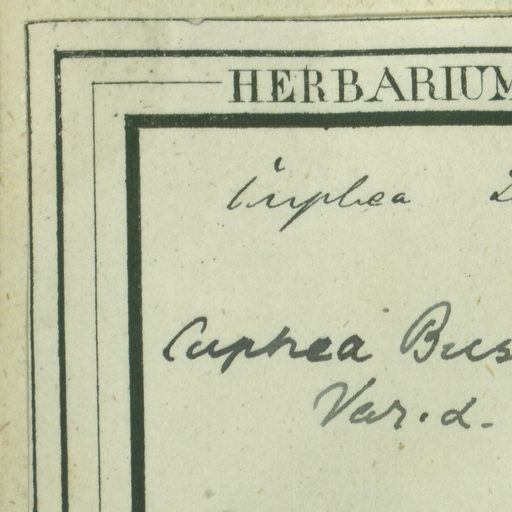 HERBARIUM
Cuphea
Cuphea Bus
Var. α.